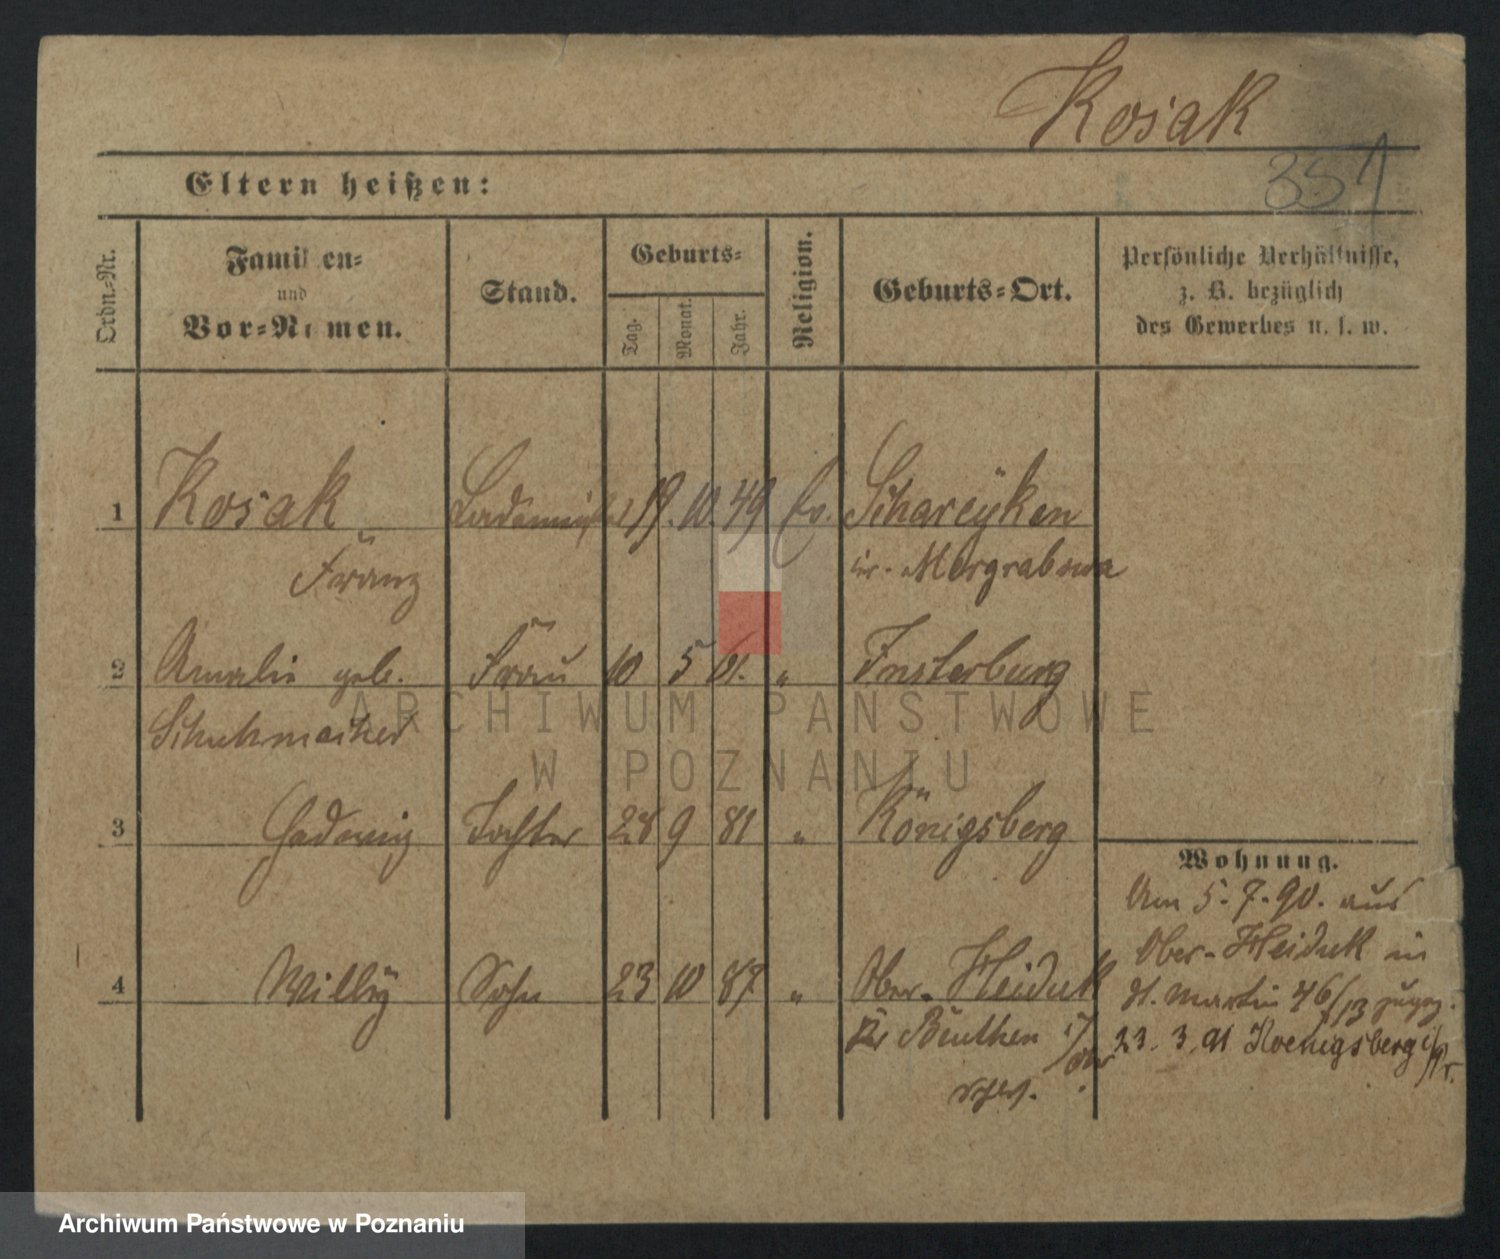 Kosak
351
Eltern heißen:
Ordn.-Nr.
Familien-
und
Vor-Namen.
Stand.
Geburts-
Tag.
Monat.
Jahr.
Religion.
Geburts-Ort.
Persönliche Verhältnisse,
z. B. bezüglich
des Gewerbes u. s. w.
1 Kosak 19. 10. 49 Ev. Schareyken
Franz Kr. Margrabowa
2 Amalie geb. Frau 10 5 61. " Insterburg
Schuhmacher
3 Hedwig Tochter 28 9 81 " Königsberg
4 Willy Sohn 23 10 87 " Ober-Heiduk
Kr Beuthen
Wohnung.
Am 5.7.90. aus
Ober-Heiduk in
St. Martin 46/13 zugez.
23. 3. 91 Koenigsberg i/Pr.
ARCHIWUM PAŃSTWOWE
W POZNANIU
Archiwum Państwowe w Poznaniu